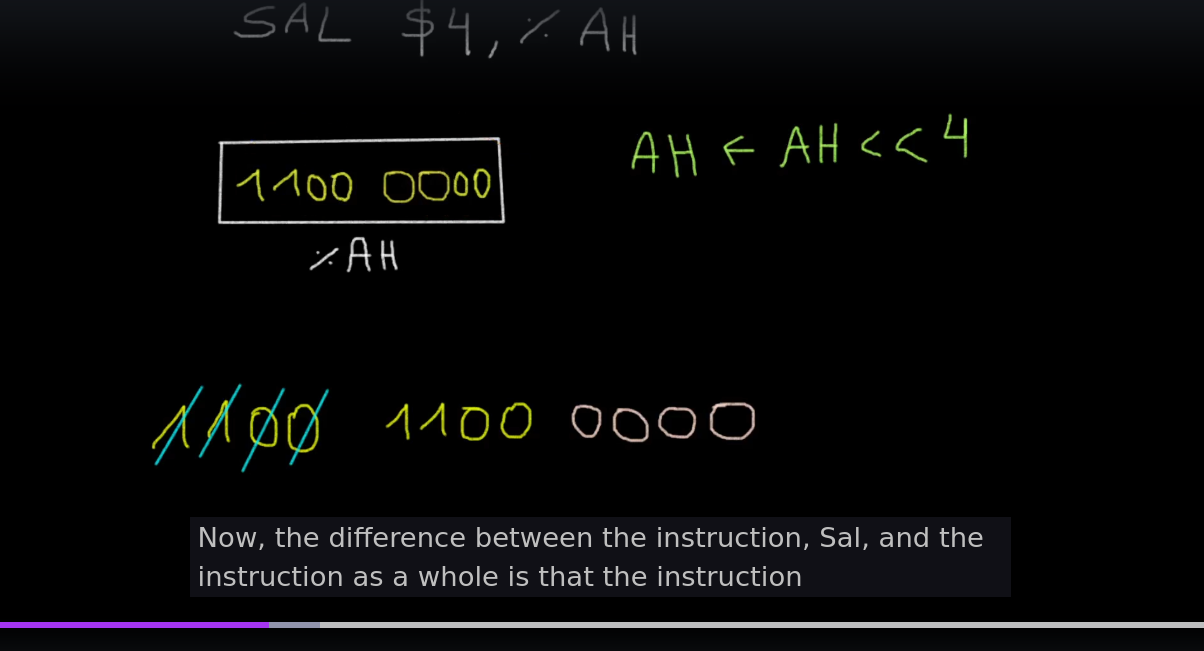 SAL $4, % AH
1100 0000
AH ← AH << 4
% AH
1100 1100 0000
Now, the difference between the instruction, Sal, and the
instruction as a whole is that the instruction